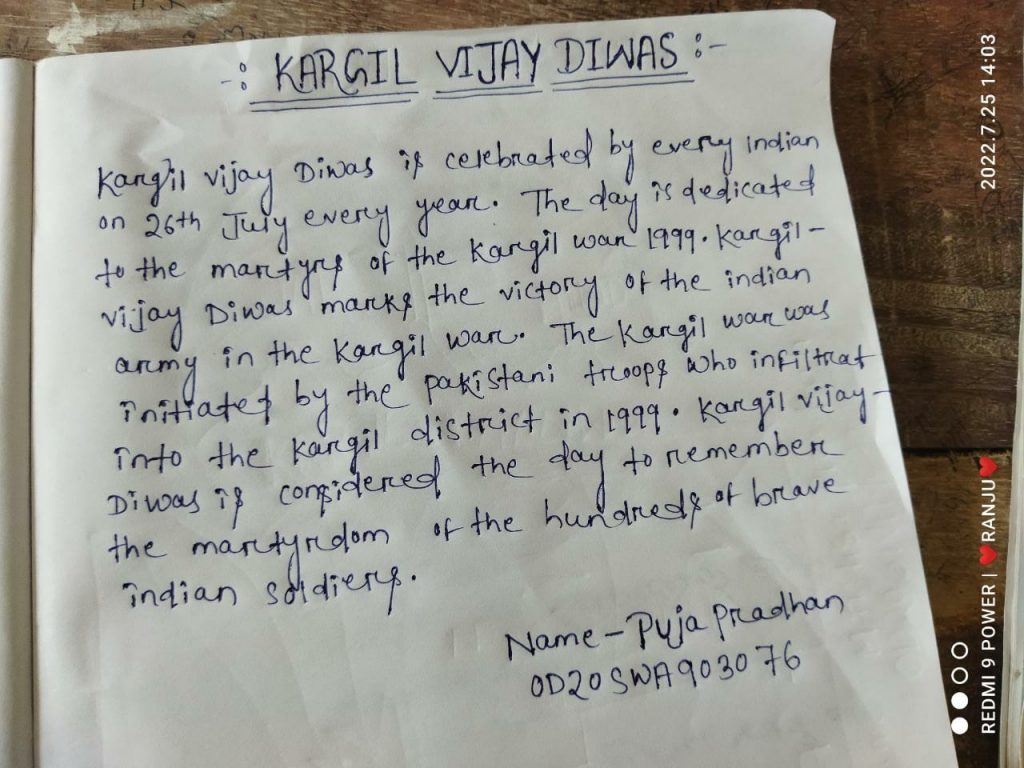 -: KARGIL VIJAY DIWAS :-
Kargil vijay Diwas is celebrated by every indian
on 26th July every year. The day is dedicated
to the martyrs of the Kargil war 1999. Kargil-
vijay Diwas marks the victory of the indian
army in the Kargil war. The Kargil war was
initiated by the pakistani troops who infiltrat
into the Kargil district in 1999. Kargil vijay-
Diwas is considered the day to remember
the martyrdom of the hundreds of brave
indian soldiers.
Name - Puja Pradhan
OD20SWA903076
REDMI 9 POWER | ❤RANJU❤ 2022.7.25 14:03